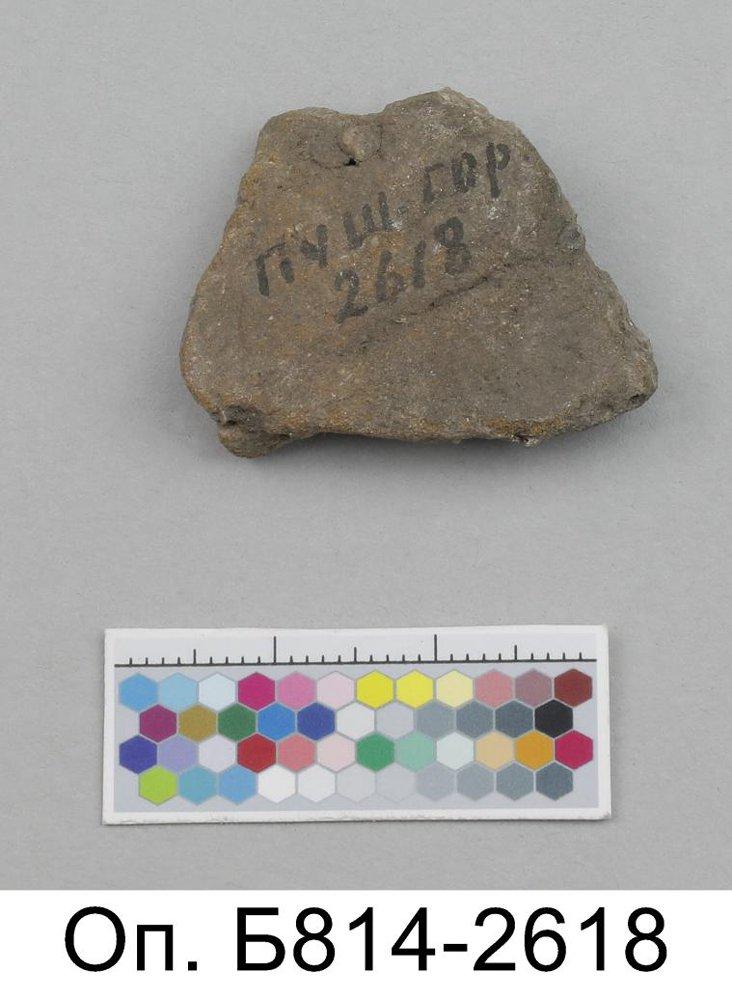 ПУЩ-ГОР
2618
Оп. Б814-2618